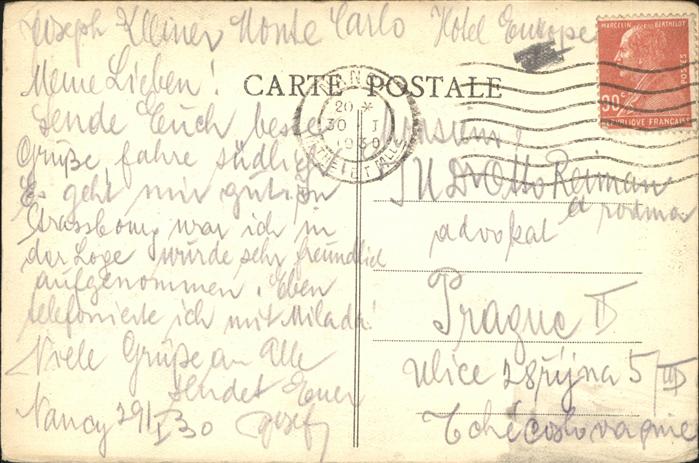 Joseph Kleiner Monte Carlo Hotel Europe
Meine Lieben!
Sende Euch beste
Grüße, fahre südlich
Es geht mir gut, in
Strassbourg war ich in
der Loge wurde sehr freundlich
aufgenommen. Eben
telefonierte ich mit Milada!
Viele Grüße an Alle
sendet Euer
Nancy 29/I 30 Josef
CARTE POSTALE
NANCY
20 *
30 - I
1930
MARCELIN BERTHELOT
POSTES
90c
REPUBLIQUE FRANÇAISE
Monsieur
JUDr Otto Reiman
a rodina
advokat
Prague II
Ulice 28 října 5/III
Tchécoslovaquie